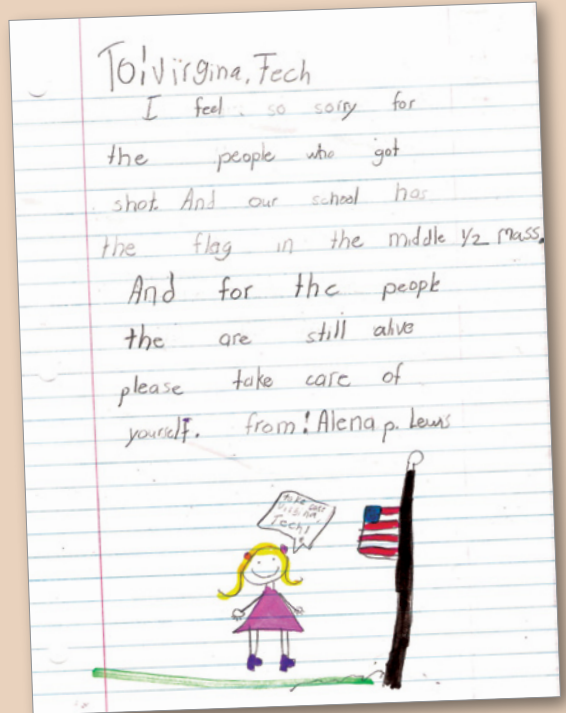 To! Virgina, Tech
I feel so sorry for
the people who got
shot. And our school has
the flag in the middle 1/2 mass.
And for the people
the are still alive
please take care of
yourself. from! Alena p. Lewis
take care
Virginia,
Tech!